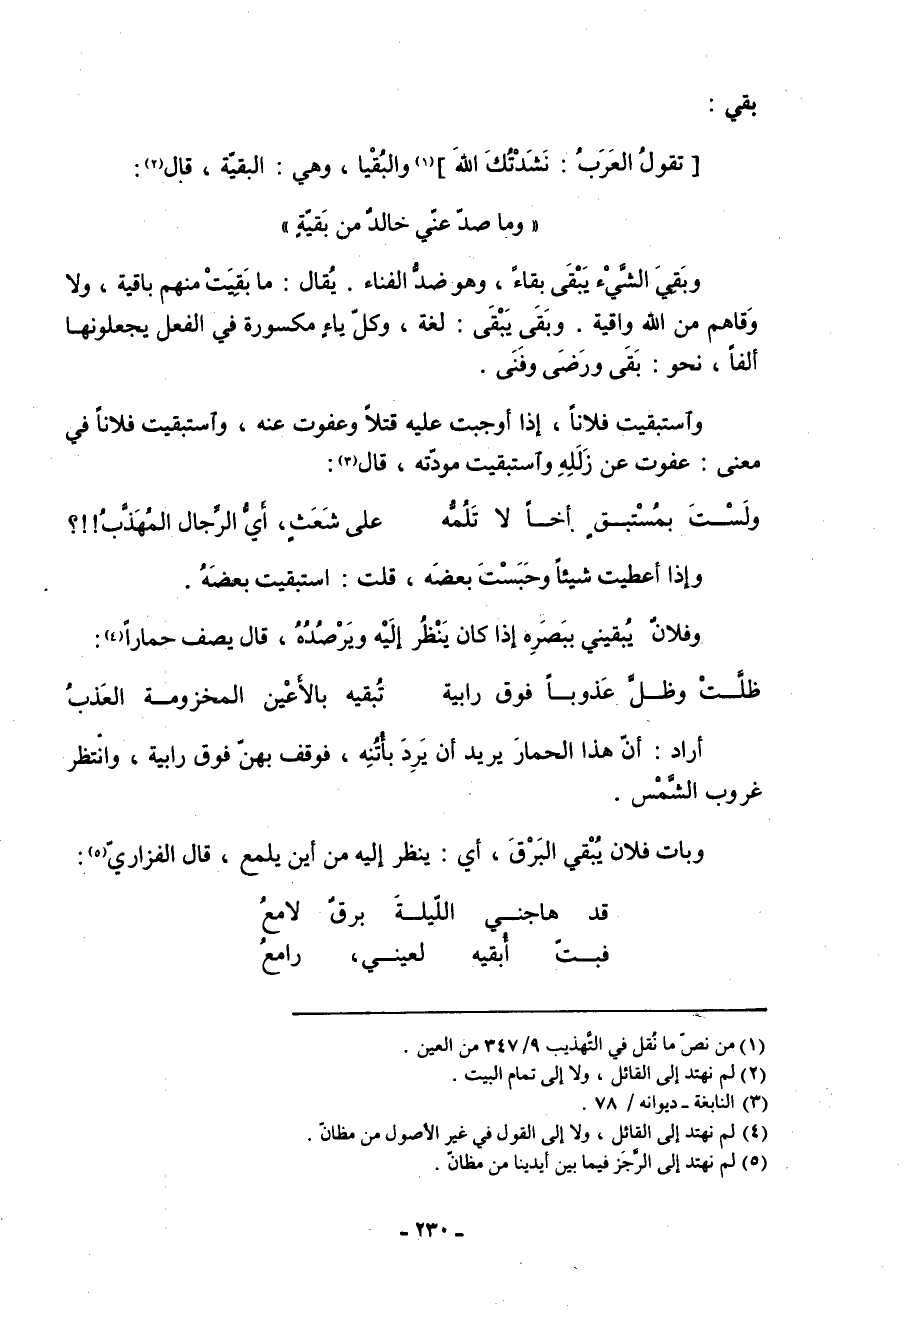 بقي :
[ تقولُ العَرَبُ : نَشَدْتُكَ اللهَ ](١) والبُقْيا ، وهي : البقيّة ، قال(٢):
« وما صدّ عنّي خالدٌ من بَقيّةٍ »
وبَقِيَ الشَّيْء يَبْقَى بقاءً ، وهو ضدُّ الفناء . يُقال : ما بَقِيَتْ منهم باقية ، ولا
وَقاهم من الله واقية . وبَقَى يَبْقَى : لغة ، وكلّ ياءٍ مكسورة في الفعل يجعلونها
ألفاً ، نحو : بَقَى ورَضَى وفَنَى .
وآستبقيت فلاناً ، إذا أوجبت عليه قتلاً وعفوت عنه ، وآستبقيت فلاناً في
معنى : عفوت عن زَلَلِهِ وآستبقيت مودّته ، قال(٣):
ولَسْتَ بمُسْتبقٍ أخاً لا تَلُمُّه على شَعَثٍ، أَيُّ الرِّجال المُهَذَّبُ!!؟
وإذا أعطيت شيئاً وحَبَسْتَ بعضَه ، قلت : استبقيت بعضَهُ .
وفلانٌ يُبقيني ببَصَرِه إذا كان يَنْظُر إلَيْه ويَرْصُدُهُ ، قال يصف حماراً(٤):
ظلَّتْ وظلَّ عَذوباً فوق رابية تُبقيه بالأَعْين المخزومة العَذبُ
أراد : أنّ هذا الحمارَ يريد أن يَرِدَ بأُتُنِه ، فوقف بهنّ فوق رابية ، وانْتظر
غروب الشَّمْس .
وبات فلان يُبْقي البَرْقَ ، أي : ينظر إليه من أين يلمع ، قال الفزاريّ(٥):
قد هاجني اللّيلةَ برقٌ لامعُ
فبتّ أُبقيه لعيني، رامعُ
(١) من نصّ ما نُقل في التَّهذيب ٩/ ٣٤٧ من العين .
(٢) لم نهتد إلى القائل ، ولا إلى تمام البيت .
(٣) النابغة ـ ديوانه / ٧٨ .
(٤) لم نهتد إلى القائل ، ولا إلى القول في غير الأصول من مظانّ .
(٥) لم نهتد إلى الرَّجَز فيما بين أيدينا من مظانّ .
ـ ٢٣٠ ـ